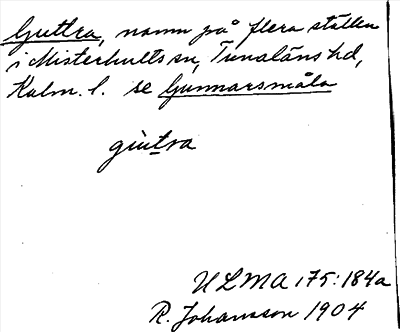 Guttra, namn på flera ställen
i Misterhults sn, Tunaläns hd,
Kalm. l. se Gunnarsmåla
gùtra
ULMA 175:184a
R. Johansson 1904